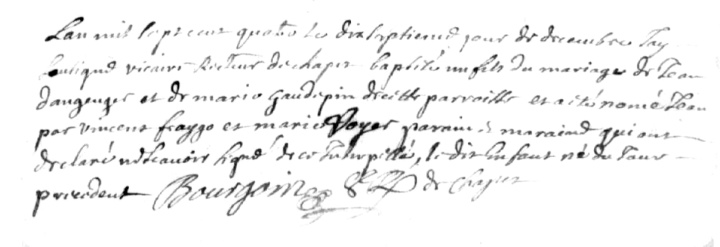 Lan mil sept cent quatre le dixseptieme jour de decembre Jay
soussigné vicaire Recteur de chapet baptisé un fils du mariage de Jean
dangenger et de marie gaudepin de cette parroisse et a eté nomé Jean
par vincent frayge et marie Voyer parain & maraine qui ont
declaré ne scavoir signé de ce Interpellés, le dit Enfant né du Jour
precedent Bourgoin de chapet